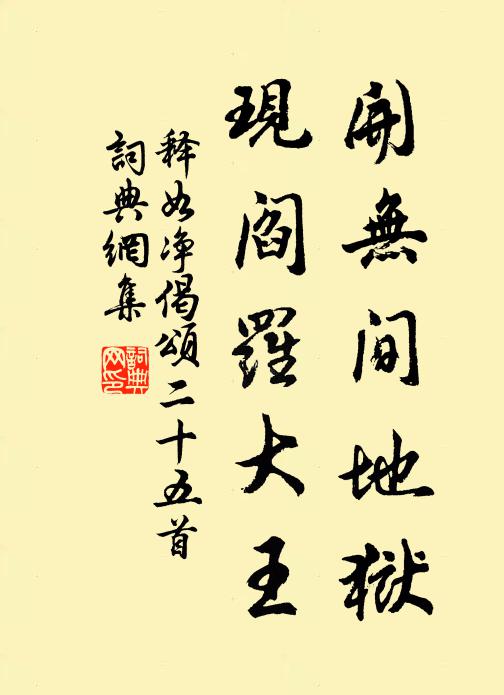 開無間地獄
現閻羅大王
释如净偈頌二十五首
詞典網集
詞典网印